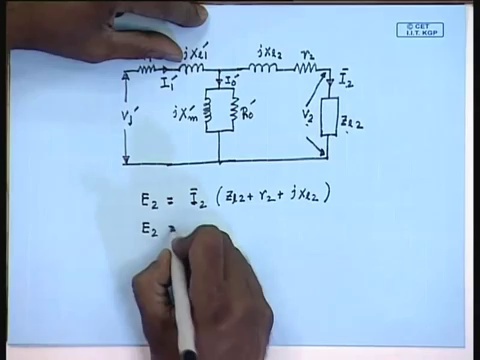 © CET
I.I.T. KGP
jXℓ1′ jXℓ2 r2
I̅1′ I̅0′ I̅2
V1′ jXm′ R0′ V2 Zℓ2
E2 = I̅2 ( Zℓ2 + r2 + jXℓ2 )
E2 =